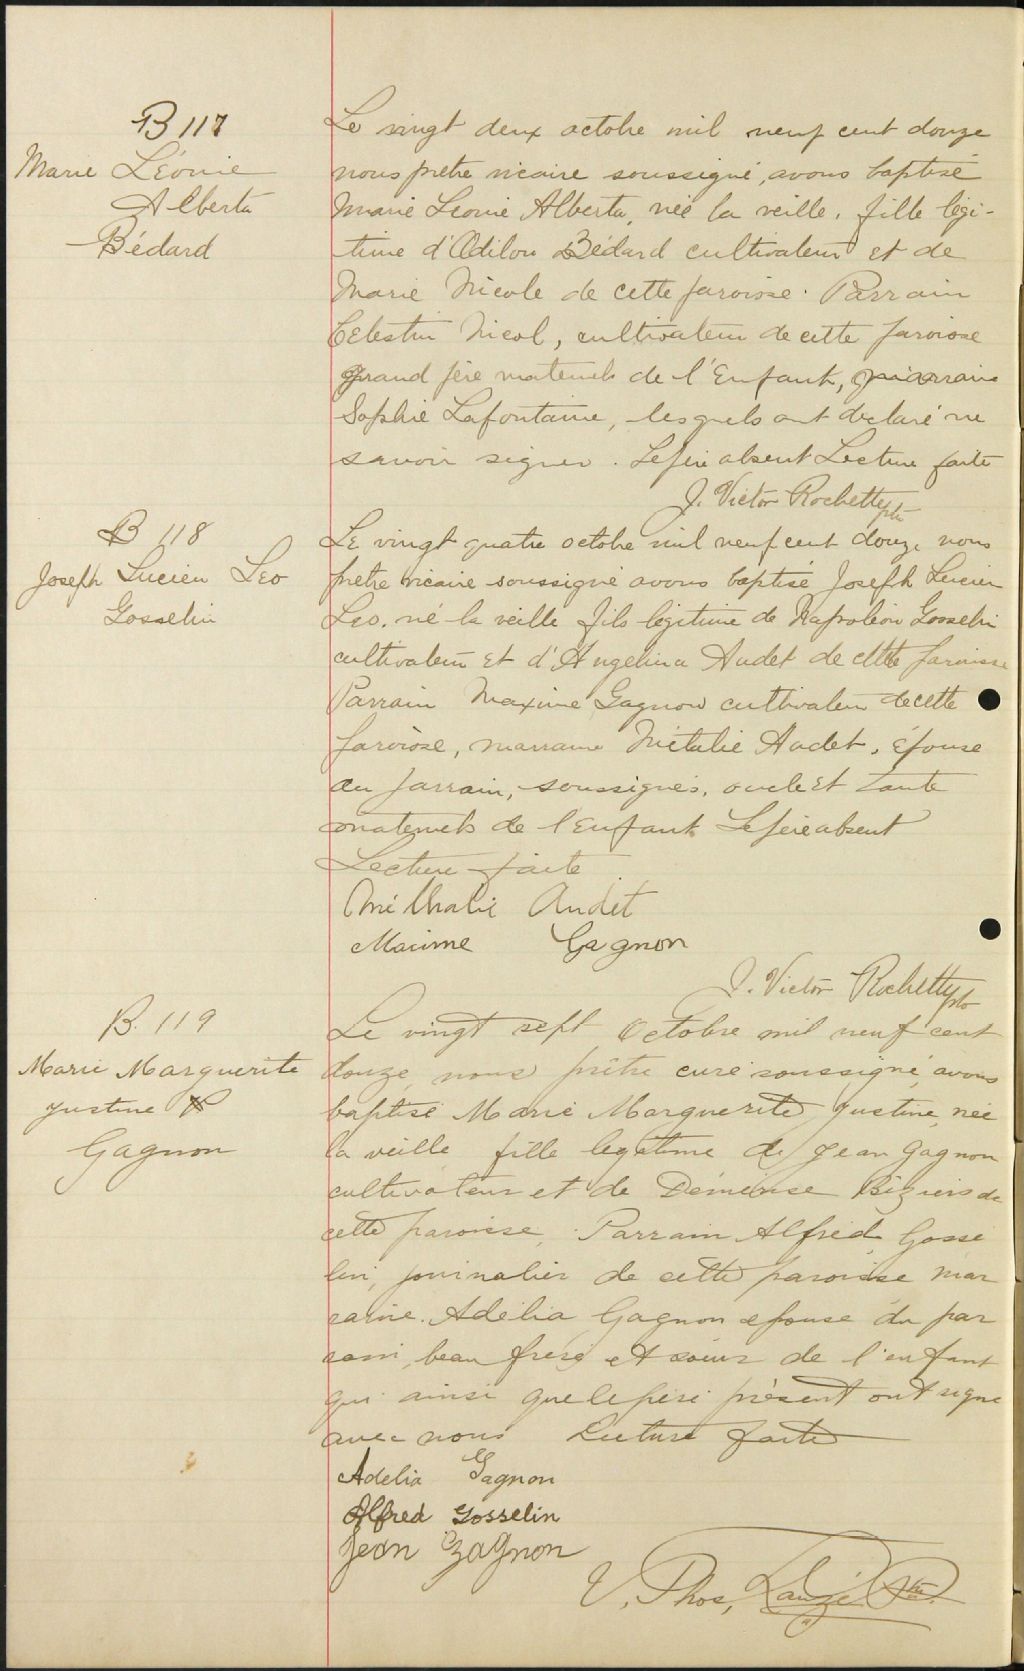 B 117
Marie Léonie
Alberta
Bédard
Le vingt deux octobre mil neuf cent douze
nous pretre vicaire soussigné, avons baptisé
Marie Leonie Alberta, née la veille, fille légi-
time d'Odilon Bédard cultivateur et de
Marie Nicole de cette paroisse. Parrain
Celestin Nicol, cultivateur de cette paroisse
grand père maternels de l'Enfant, marraine
Sophie Lafontaine, lesquels ont declaré ne
savoir signer. Le père absent Lecture faite
J. Victor Rochette ptr
B 118
Joseph Lucien Leo
Gosselin
Le vingt quatre octobre mil neuf cent douze, nous
pretre vicaire soussigné avons baptisé Joseph Lucien
Leo, né la veille fils legitime de Napoléon Gosselin
cultivateur et d'Angelina Audet de cette paroisse
Parrain Maxime Gagnon cultivateur de cette
paroisse, marraine Métalie Audet, épouse
du parrain, soussignés, oncle et tante
maternels de l'Enfant Le père absent
Lecture faite
Méthalie Audet
Maxime Gagnon
J. Victor Rochette ptr
B. 119
Marie Marguerite
Justine
Gagnon
Le vingt sept Octobre mil neuf cent
douze, nous prêtre curé soussigné, avons
baptisé Marie Marguerite Justine, née
la veille fille legitime de Jean Gagnon
cultivateur et de Démerise Biziers de
cette paroisse, Parrain Alfred Gosse
lin, journalier de cette paroisse mar
raine. Adélia Gagnon epouse du par
rain, beau frere et soeur de l'enfant
qui ainsi que le père présent ont signé
avec nous Lecture faite
Adelia Gagnon
Alfred Gosselin
Jean Gagnon
V. Phos, Lauzé Ptre.